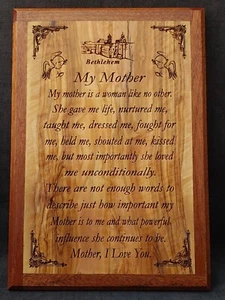 Bethlehem
My Mother
My mother is a woman like no other.
She gave me life, nurtured me,
taught me, dressed me, fought for
me, held me, shouted at me, kissed
me, but most importantly she loved
me unconditionally.
There are not enough words to
describe just how important my
Mother is to me and what powerful
influence she continues to be.
Mother, I Love You.